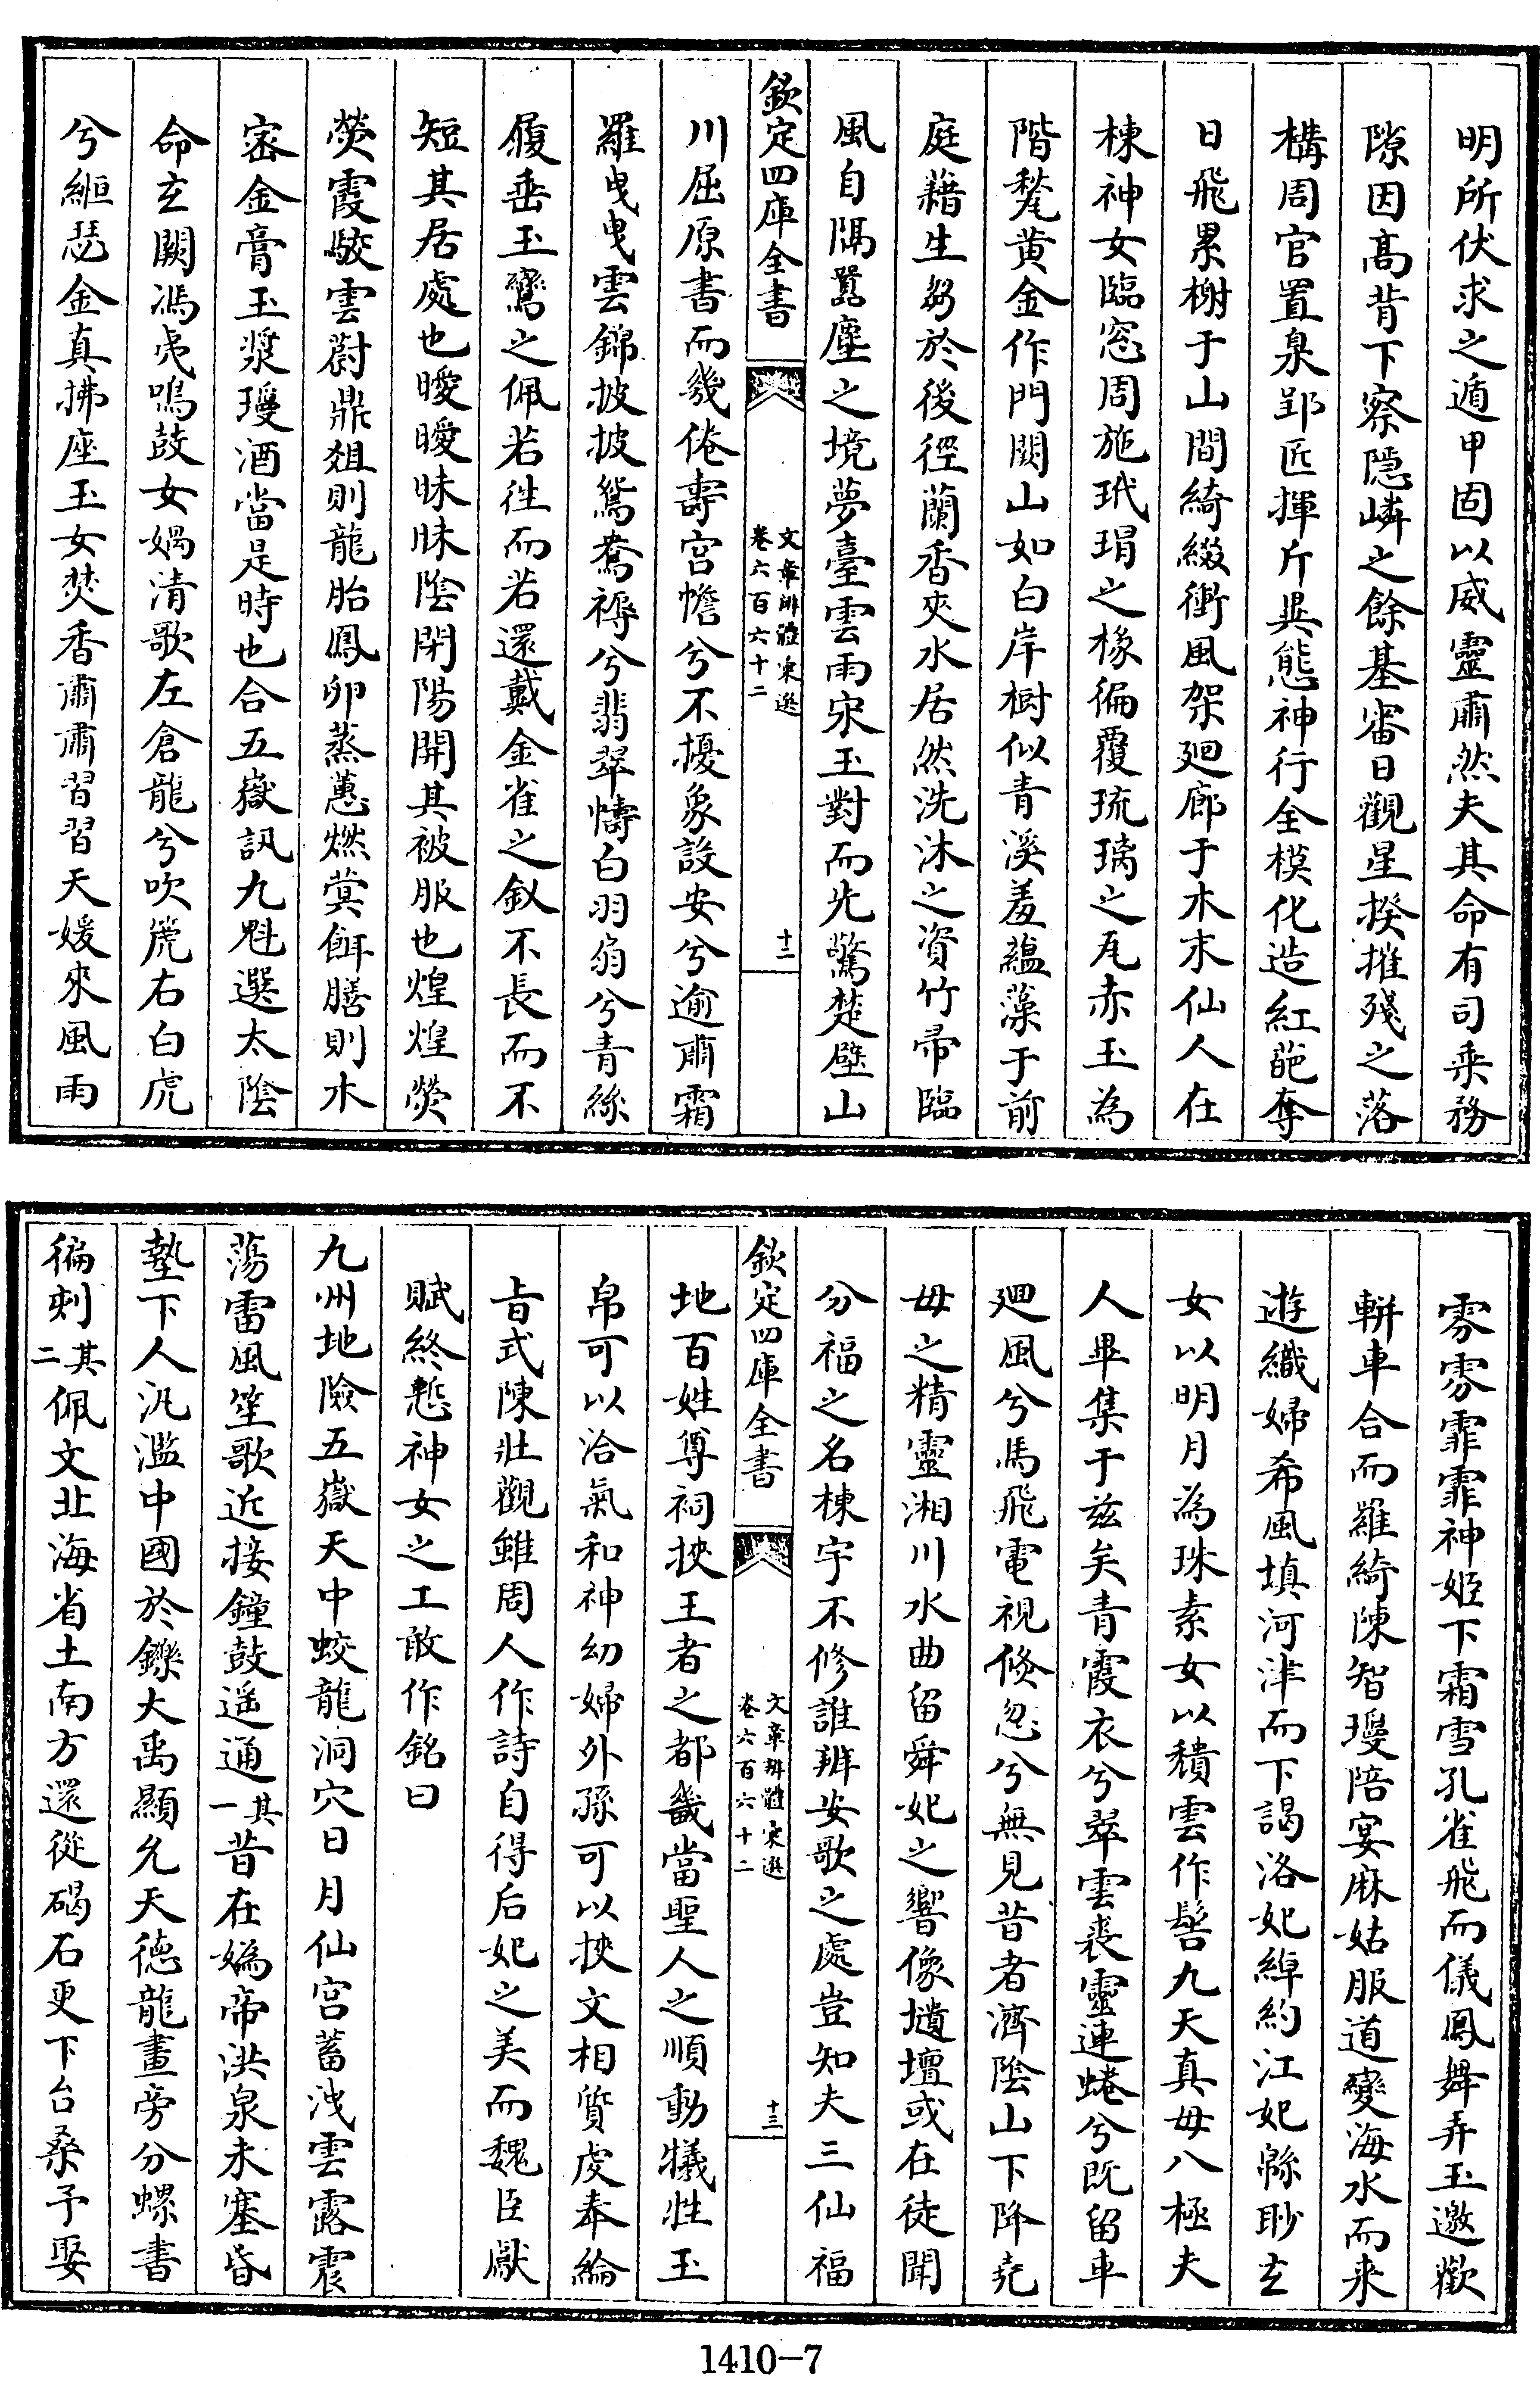 明所伏求之遁甲固以威靈肅然夫其命有司乘務
隙因髙背下察隠嶙之餘基審日觀星揆摧殘之落
構周官置臬郢匠揮斤異態神行全模化造紅葩奪
日飛累榭于山間綺綴衝風架廻廊于木末仙人在
棟神女臨窓周施玳瑁之椽徧覆琉璃之瓦赤玉為
階甃黄金作門闕山如白岸樹似青溪羞蘊藻于前
庭藉生芻於後徑蘭香夾水居然洗沐之資竹帚臨
風自隔囂塵之境夢臺雲雨宋玉對而先驚楚壁山
欽定四庫全書
文章辨體彚選
卷六百六十二
十二
川屈原書而幾倦壽宫憺兮不擾象設安兮逾肅霜
羅曳曳雲錦披披鴛鴦褥兮翡翠幬白羽扇兮青絲
履垂玉鸞之佩若徃而若還戴金雀之釵不長而不
短其居處也曖曖昧昧陰閉陽開其被服也煌煌熒
熒霞駮雲蔚鼎俎則龍胎鳳卵蒸蕙燃蓂餌膳則水
宻金膏玉漿瓊酒當是時也合五嶽訊九魁選太陰
命玄闕馮夷鳴鼓女媧清歌左倉龍兮吹篪右白虎
兮緪瑟金真拂座玉女焚香肅肅習習天媛來風雨
雰雰霏霏神姬下霜雪孔雀飛而儀鳳舞弄玉邀歡
軿車合而羅綺陳智瓊陪宴麻姑服道變海水而来
遊織婦希風填河津而下謁洛妃綽約江妃緜眇玄
女以明月為珠素女以積雲作髻九天真母八極夫
人畢集于兹矣青霞衣兮翠雲裘靈連蜷兮既留車
廻風兮馬飛電視倐忽兮無見昔者濟陰山下降堯
母之精靈湘川水曲留舜妃之響像壝壇或在徒聞
分福之名棟宇不修誰辨安歌之處豈知夫三仙福
欽定四庫全書
文章辨體彚選
卷六百六十二
十三
地百姓尊祠挾王者之都畿當聖人之順動犧牲玉
帛可以洽氣和神幼婦外孫可以挾文相質虔奉綸
旨式陳壯觀雖周人作詩自得后妃之美而魏臣獻
賦終慙神女之工敢作銘曰
九州地險五嶽天中蛟龍洞穴日月仙宫蓄洩雲露震
蕩雷風笙歌近接鐘鼓遥通其一昔在媯帝洪泉未塞昏
墊下人汎濫中國於鑠大禹顯允天德龍畫旁分螺書
徧刻其二佩文北海省土南方還從碣石更下台桑予娶
1410-7